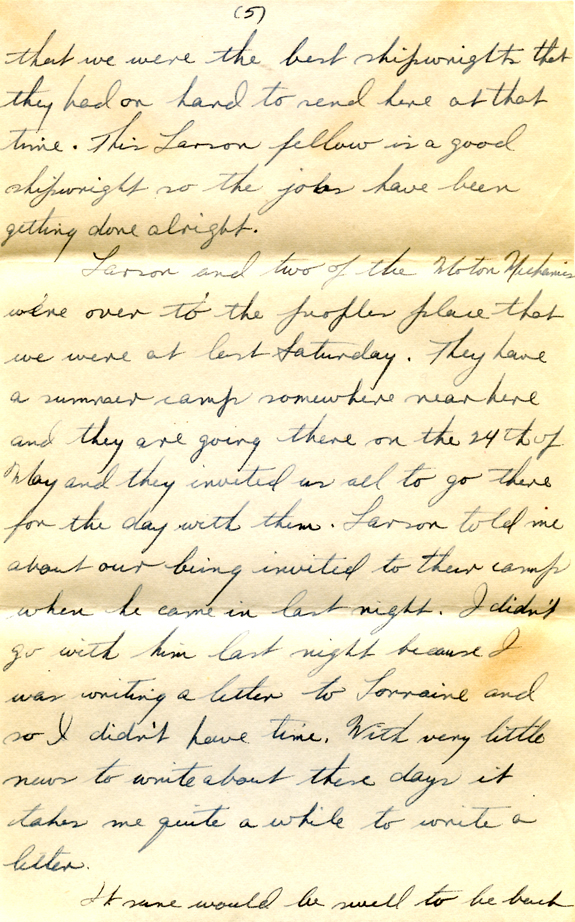 (5)
that we were the best shipwrights that
they had on hand to send here at that
time. This Larson fellow is a good
shipwright so the jobs have been
getting done alright.
Larson and two of the Motor Mechanics
were over to the peoples place that
we were at last Saturday. They have
a summer camp somewhere near here
and they are going there on the 24th of
May and they invited us all to go there
for the day with them. Larson told me
about our being invited to their camp
when he came in last night. I didn't
go with him last night because I
was writing a letter to Lorraine and
so I didn't have time. With very little
news to write about these days it
takes me quite a while to write a
letter.
It sure would be swell to be back